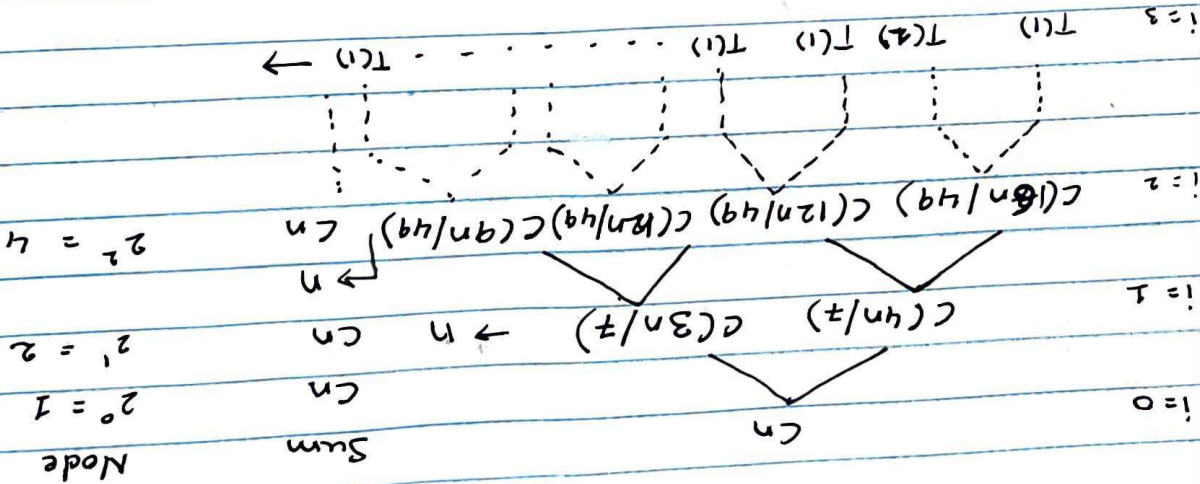 Node Sum
i=0 Cn Cn 2^0 = 1
i=1 C(4n/7) C(3n/7) → n Cn 2^1 = 2
n
i=2 C(16n/49) C(12n/49) C(12n/49) C(9n/49) Cn 2^2 = 4
i=3 T(1) T(1) T(1) T(1) - - - - - - T(1) →